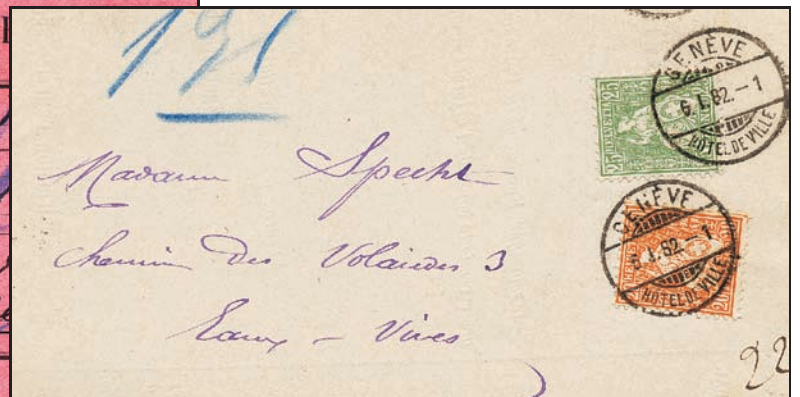 GENÈVE
6.I.82.–1
HÔTEL DE VILLE
25 HELVETIA 25
Madame Specht
GENÈVE
I.82.–1
HÔTEL DE VILLE
Chemin des Volandes 3
Eaux – Vives
22